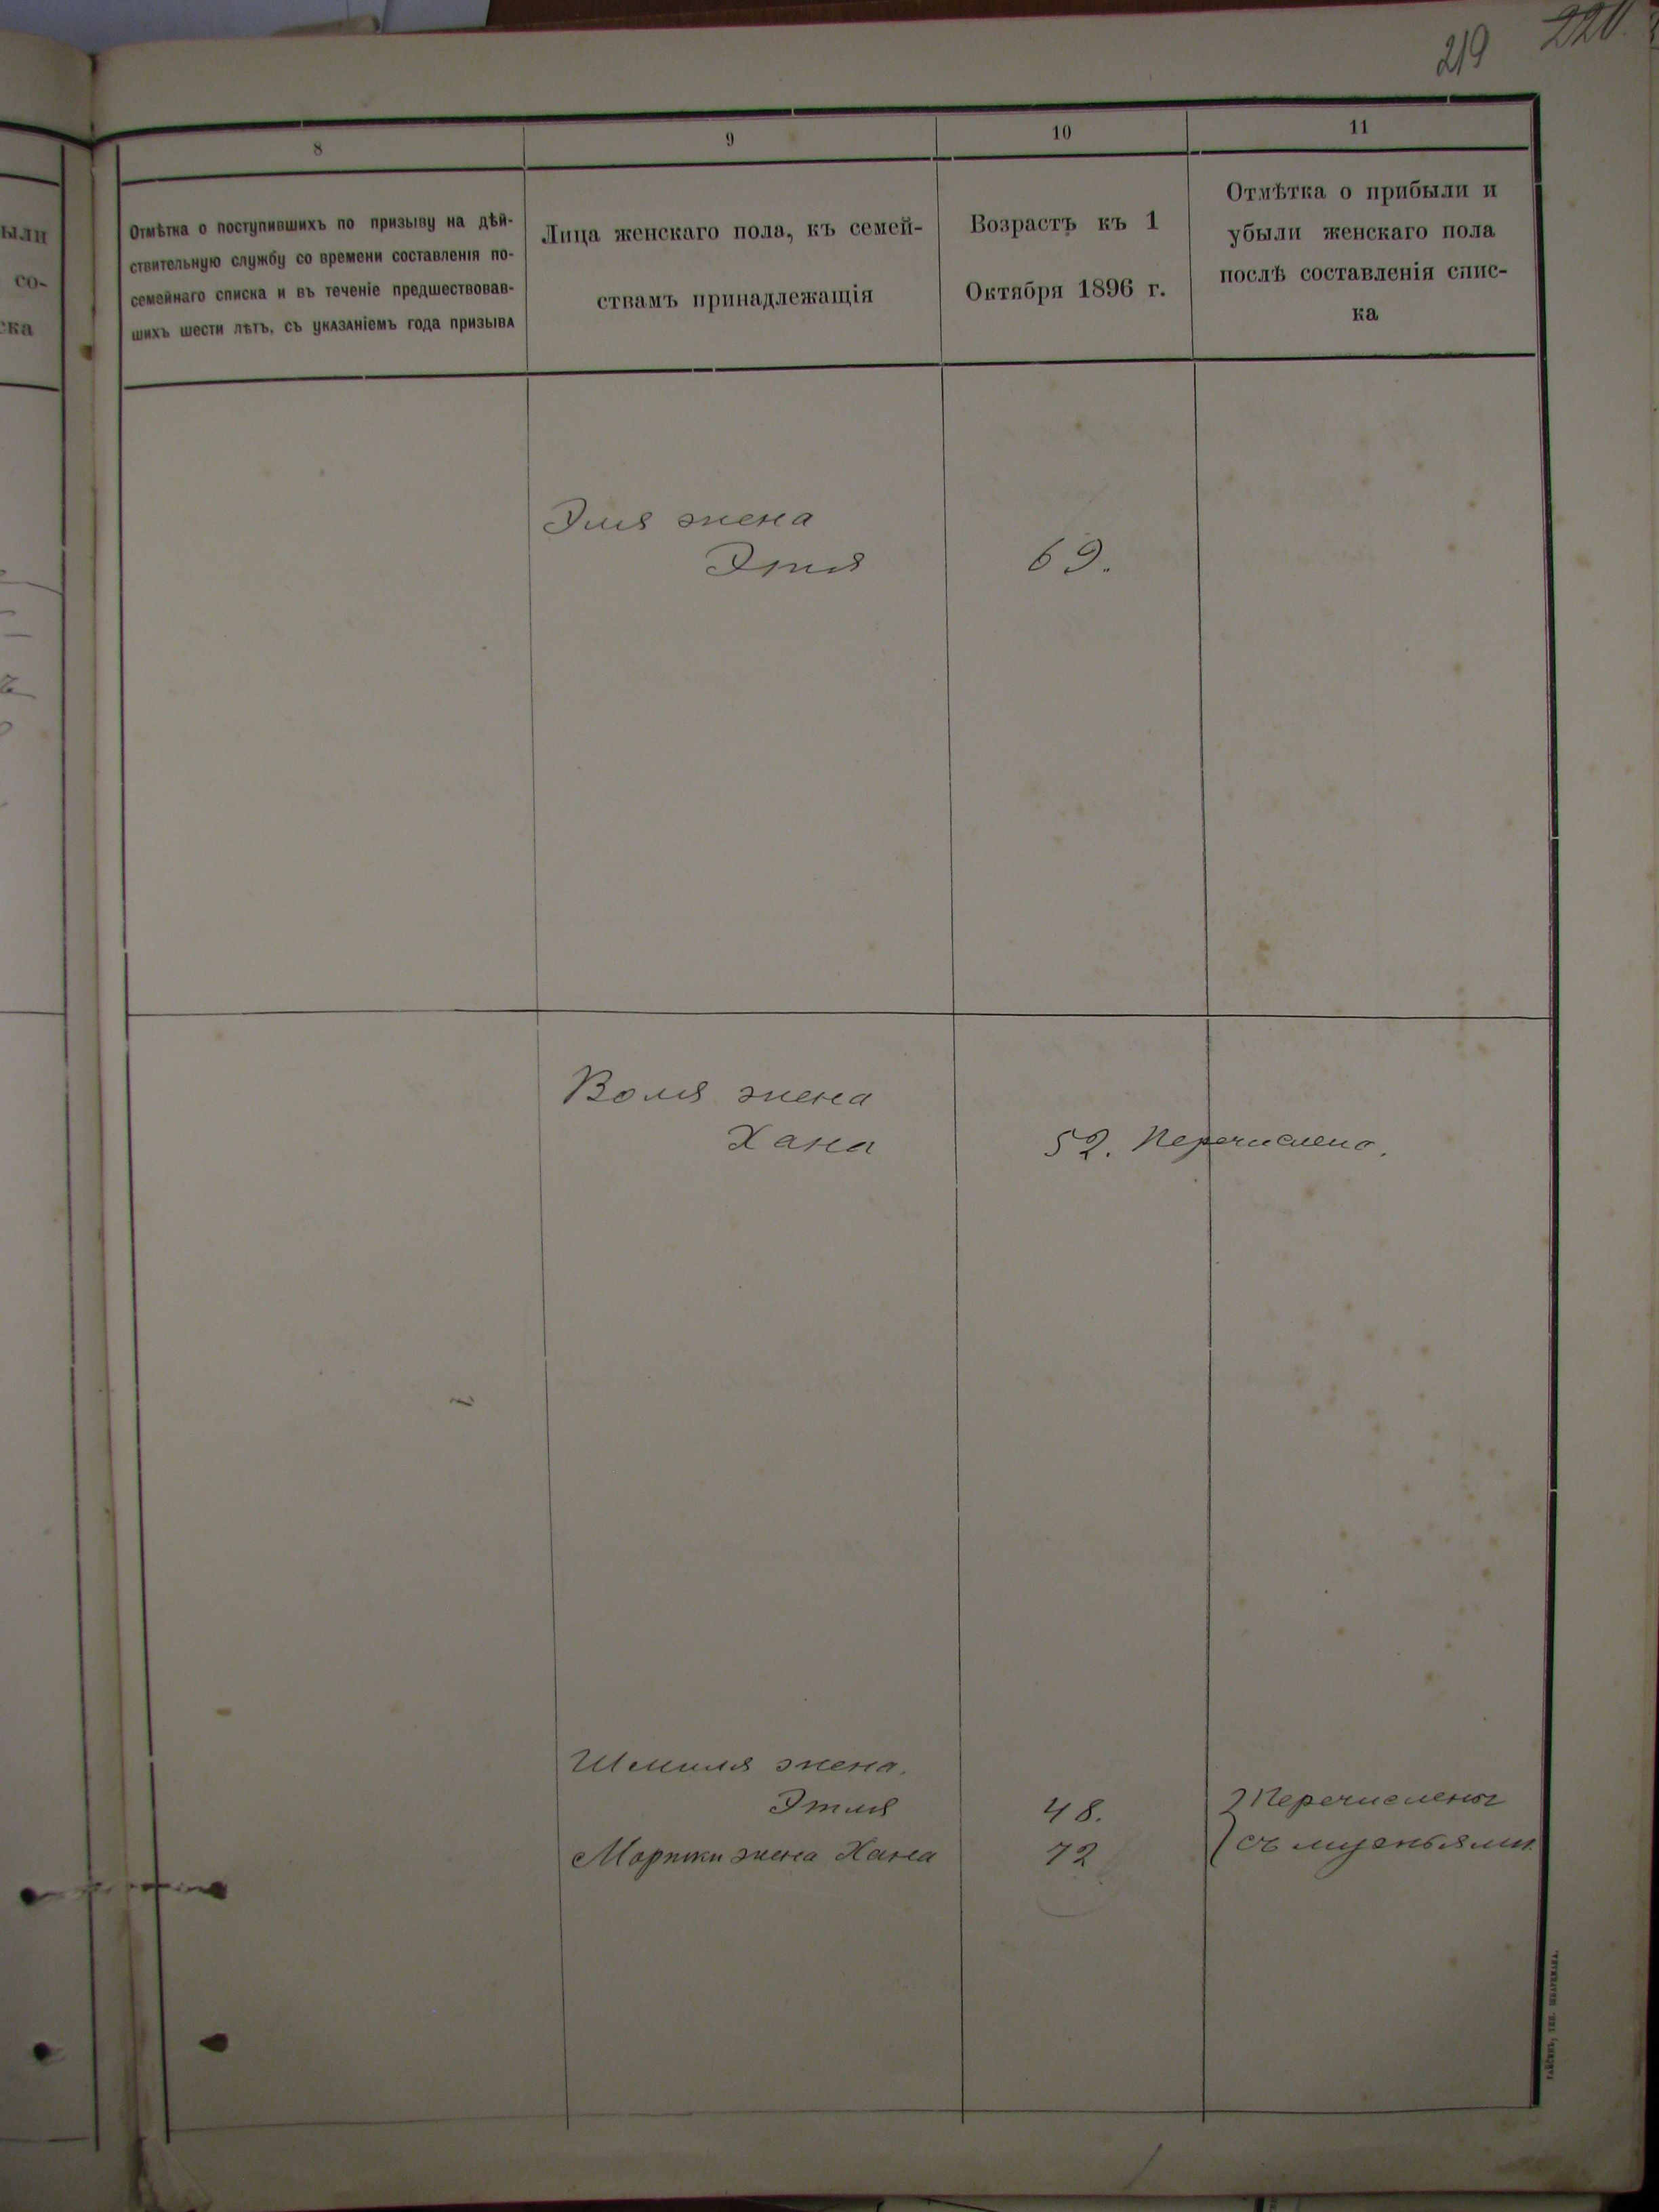 219 220.
8
9
10
11
Отмѣтка о поступившихъ по призыву на дѣй-
ствительную службу со времени составленія по-
семейнаго списка и въ теченіе предшествовав-
шихъ шести лѣтъ, съ указаніемъ года призыва
Лица женскаго пола, къ семей-
ствамъ принадлежащія
Возрастъ къ 1
Октября 1896 г.
Отмѣтка о прибыли и
убыли женскаго пола
послѣ составленія спис-
ка
ыли
со-
ска
жена
Этя 69.
Воля жена
Хана 52. Перечислена.
Шмиля жена.
Этля 48. Перечислены
Мортки жена Хана 72 съ мужьями.
Гайсинъ, тип. Шваркмана.